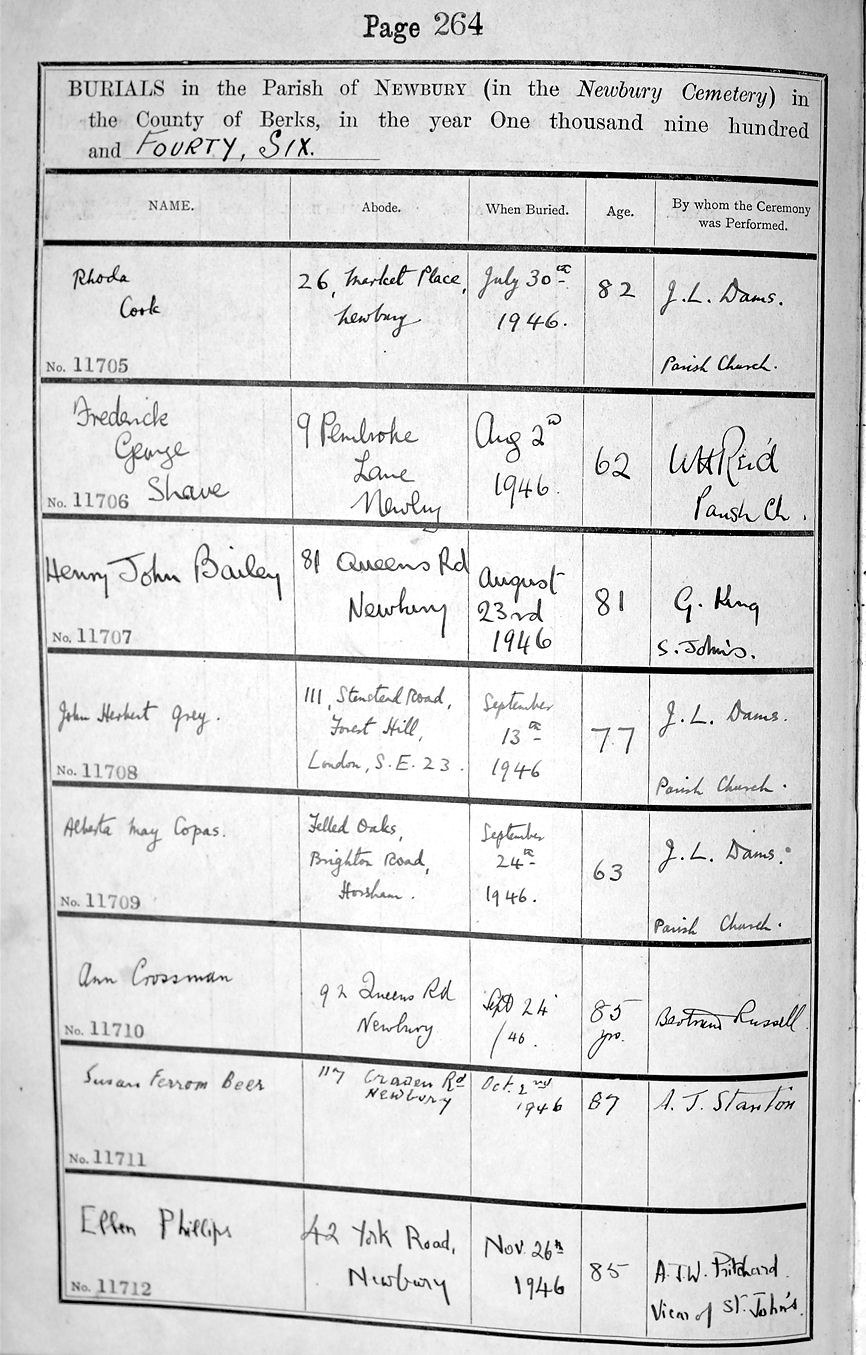 Page 264
BURIALS in the Parish of NEWBURY (in the Newbury Cemetery) in
the County of Berks, in the year One thousand nine hundred
and FOURTY, SIX.
NAME.
Abode.
When Buried.
Age.
By whom the Ceremony
was Performed.
Rhoda
Cook
No. 11705
26, Market Place,
Newbury
July 30th
1946.
82
J. L. Dams.
Parish Church.
Frederick
George
Shave
No. 11706
9 Pembroke
Lane
Newbury
Aug 2nd
1946.
62
WH Reid
Parish Ch.
Henry John Bailey
No. 11707
81 Queens Rd
Newbury
August
23rd
1946
81
G. King
S. John's.
John Herbert Grey.
No. 11708
111, Stanstead Road,
Forest Hill,
London, S.E. 23.
September
13th
1946
77
J. L. Dams.
Parish Church.
Alberta May Copas.
No. 11709
Felled Oaks,
Brighton Road,
Horsham.
September
24th
1946.
63
J. L. Dams.
Parish Church.
Ann Crossman
No. 11710
92 Queens Rd
Newbury
Sept 24
/46.
85
yrs.
Bertrand Russell.
Susan Ferrom Beer
No. 11711
117 Craven Rd
Newbury
Oct. 2nd
1946
87
A. J. Stanton
Ellen Phillips
No. 11712
42 York Road,
Newbury
Nov. 26th
1946
85
A.J.W. Pritchard.
Vicar of St. John's.